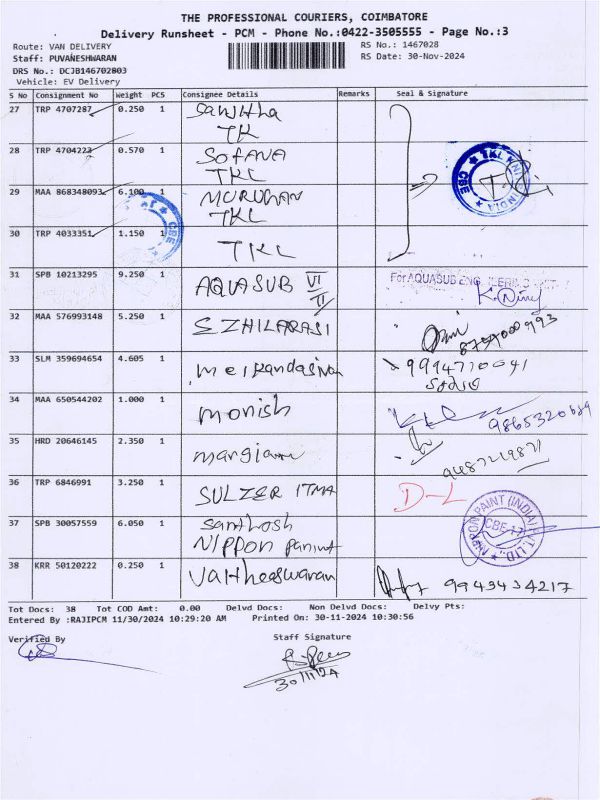 THE PROFESSIONAL COURIERS, COIMBATORE
Delivery Runsheet - PCM - Phone No.:0422-3505555 - Page No.:3
Route: VAN DELIVERY
RS No.: 1467028
Staff: PUVANESHWARAN
RS Date: 30-Nov-2024
DRS No.: DCJB146702803
Vehicle: EV Delivery
S No Consignment No Weight PCS Consignee Details Remarks Seal & Signature
27 TRP 4707287 0.250 1
TK
28 TRP 4704223 0.570 1 SOFANA
TKL
29 MAA 868348093 6.100 1 MURUGAN
TKL
30 TRP 4033351 1.150 1 TKL
TKL KNIT INDIA CBE
31 SPB 10213295 9.250 1 AQUASUB VI
For AQUASUB
32 MAA 576993148 5.250 1 EZHILARASI
33 SLM 359694654 4.605 1
34 MAA 650544202 1.000 1 monish
35 HRD 20646145 2.350 1
36 TRP 6846991 3.250 1 SULZER ITMA D-L
37 SPB 30057559 6.050 1 Santhosh
NIPPON Paint
NIPPON PAINT (INDIA) PVT. LTD.
38 KRR 50120222 0.250 1 Vaitheeswaran
Tot Docs: 38 Tot COD Amt: 0.00 Delvd Docs: Non Delvd Docs: Delvy Pts:
Entered By :RAJIPCM 11/30/2024 10:29:20 AM Printed On: 30-11-2024 10:30:56
Verified By
Staff Signature
30/11/24